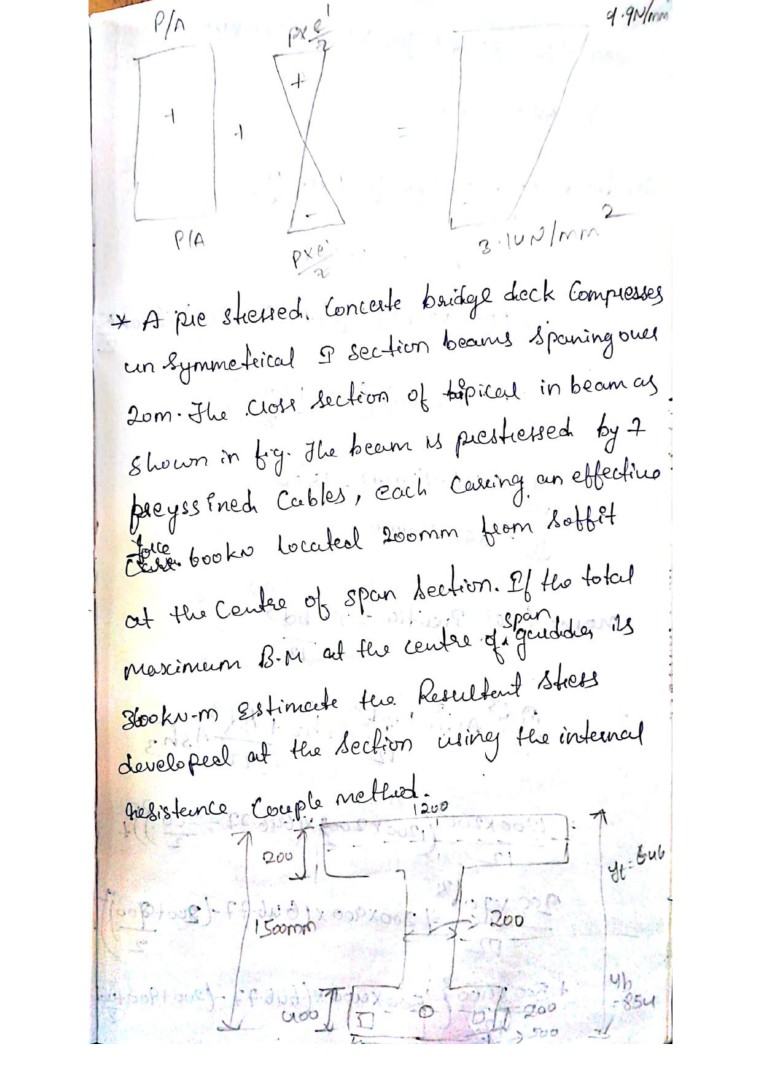 P/A
pxe'/z
9.9N/mm
+
+
+
=
-
P/A
pxe'/z
3.10N/mm²
* A pre stressed. Concerte bridge deck Compresses
un Symmeterical I section beams spaning over
20m. The Cross section of tipical in beam as
shown in fig. The beam is prestressed by 7
freyssined Cables, each Carring an effective
force 600kN located 200mm from Soffit
at the Centre of span section. If the total
maximum B.M at the centre of span girder is
3600kN-m Estimate the Resultent stress
developed at the section using the internal
resistence Couple method.
1200
200
1500mm
200
yt = 646
yb = 854
400
200
500